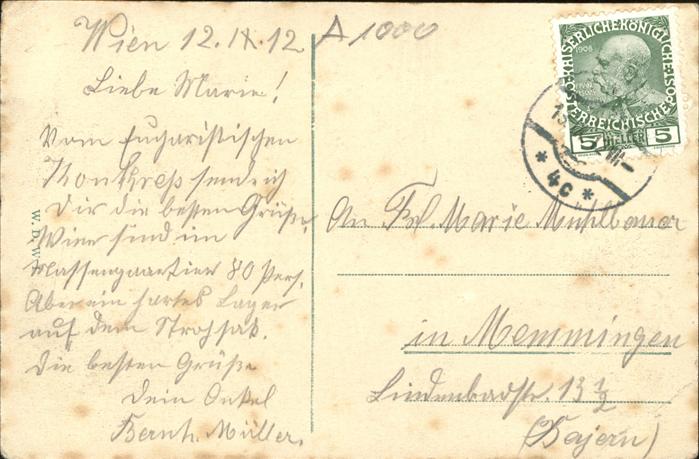 Wien 12. IX. 12
Liebe Marie!
Vom Eucharistischen
Konkreß sende ich
Dir die besten Grüße.
Wier sind im
Massenquartier 80 Pers.
Aber ein hartes Lager
auf dem Strohsak.
Die besten Grüße
Dein Onkel
Bernh. Müller.
W.D.W.
A 1000
KAISERLICHE KÖNIGLICHE
ÖSTERREICHISCHE POST
1908
5 HELLER 5
* 4c *
An Frl. Marie Mühlbauer
in Memmingen
Lindenbadstr. 13 1/2
(Bajern)